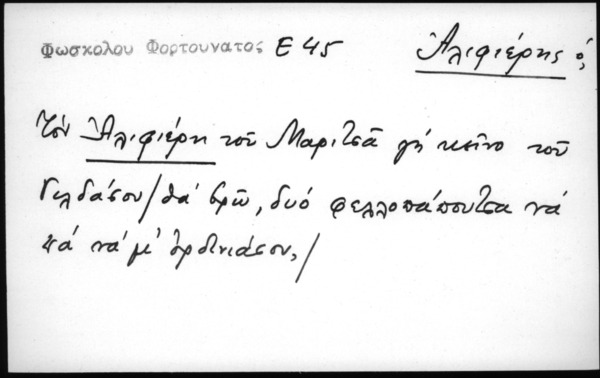 Φωσκολου Φορτουνατος Ε 45 Ἀλιφιέρης ὁ,
Τὸν Ἀλιφιέρη τοῦ Μαριτσᾶ γή κεῖνο τοῦ
Γιλδάσου/θά βρῶ, δυό φελλοπάπουτσα νά
πά νά μ' ὀρδινιάσου,/